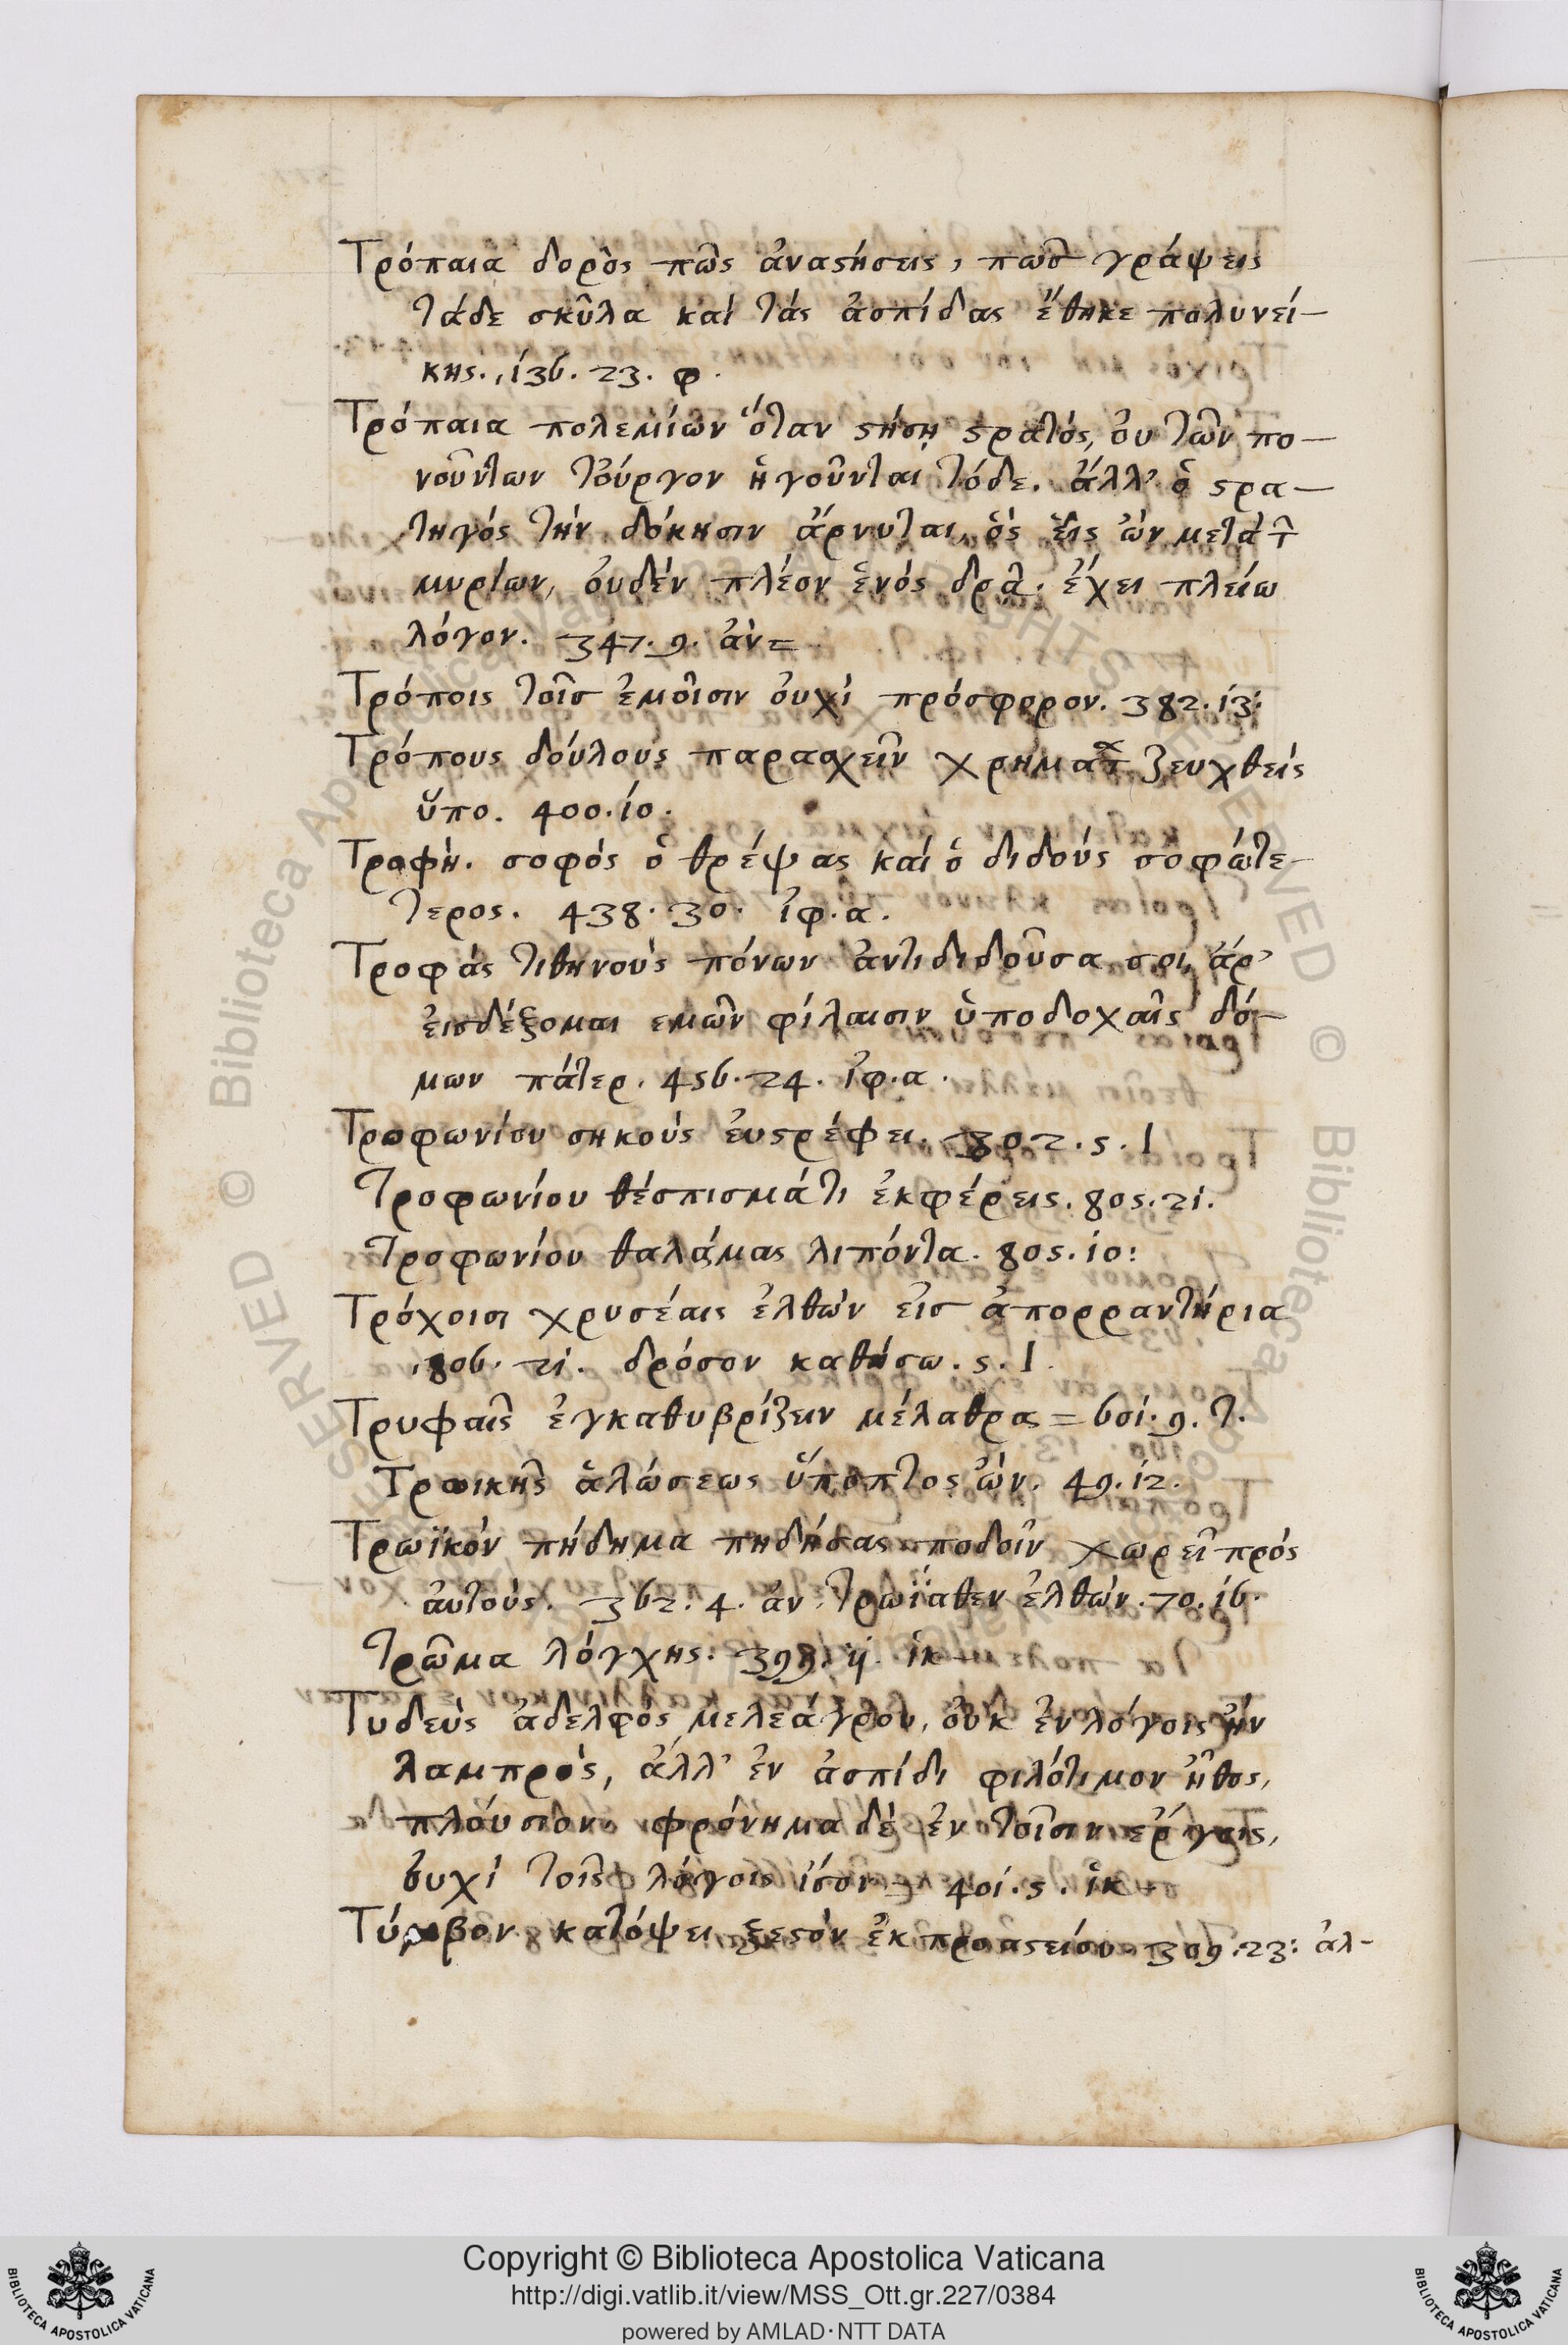 Τρόπαια δορὸς πῶς ἀναϛήσεις, πῶσ γράψεις
τάδε σκῦλα καί τάς ἀσπίδας ἔθηκε πολυνεί-
κης. 136. 23. φ.
Τρόπαια πολεμίων ὅταν ϛήσῃ ϛρατός, ὀυ τῶν πο-
νοῦντων τὄυργον ἡγοῦνται τόδε. ἀλλ' ὁ ϛρα-
τηγός τήν δόκησιν ἄρνυται, ὅς ἕις ὤν μετά τ
μυρίων, ὀυδέν πλέον ἑνός δρᾶ. ἔχει πλείω
λόγον. 347. 9. ἀν=
Τρόποις τοῖσ ἐμοῖσιν ὀυχί πρόσφορον. 382. 13:
Τρόπους δούλους παρασχεῖν χρημάτ ζευχθείς
ὕπο. 400. 10.
Τροφή. σοφός ὁ θρέψας καί ὁ διδούς σοφώτε-
τερος. 438. 30. ἰφ. α.
Τροφάς τιθηνούς πόνων ἀντιδιδοῦσα σοι, ἀρ'
ἐισδέξομαι εμῶν φίλαισιν ὑποδοχαῖς δό-
μων πάτερ. 456. 24. ἰφ. α.
Τροφωνίου σηκούς ἐυϛρέφει. 802. 5. 1
Τροφωνίου θέσπισμάτι ἐκφέρεις. 805. 21.
Τροφωνίου θαλάμας λιπόντα. 805. 10:
Τρόχοισι χρυσέαις ἐλθών εἰσ ἀπορραντήρια
806. 21. δρόσον καθήσω. 5. 1.
Τρυφαῖς ἐγκαθυβρίζειν μέλαθρα = 601. 9. τ.
Τρωικῆς ἁλώσεως ὕποπτος ὤν. 49. 12.
Τρωϊκόν πήδημα πηδήσας ποδοῖν χωρεῖ πρός
ἀυτούς. 362. 4. ἀν. Τρωΐαθεν ἐλθών. 70. 16.
Τρῶμα λόγχης: 399. ij. ἱκ-
Τυδεύς ἀδελφός μελεάγρου, οὐκ ἐν λόγοις ἦν
λαμπρός, ἀλλ' ἐν ἀσπίδι φιλότιμον ἦθος,
πλόυσιον, φρόνημα δέ ἐν τοῖσιν έργοις,
ὀυχί τοῖς λόγοις ἰσόν = 401. 5. ἱκ-
Τύμβον κατόψει ξεϛόν ἐκ προαϛείου. 309. 23: ἀλ-
Copyright © Biblioteca Apostolica Vaticana
http://digi.vatlib.it/view/MSS_Ott.gr.227/0384
powered by AMLAD·NTT DATA